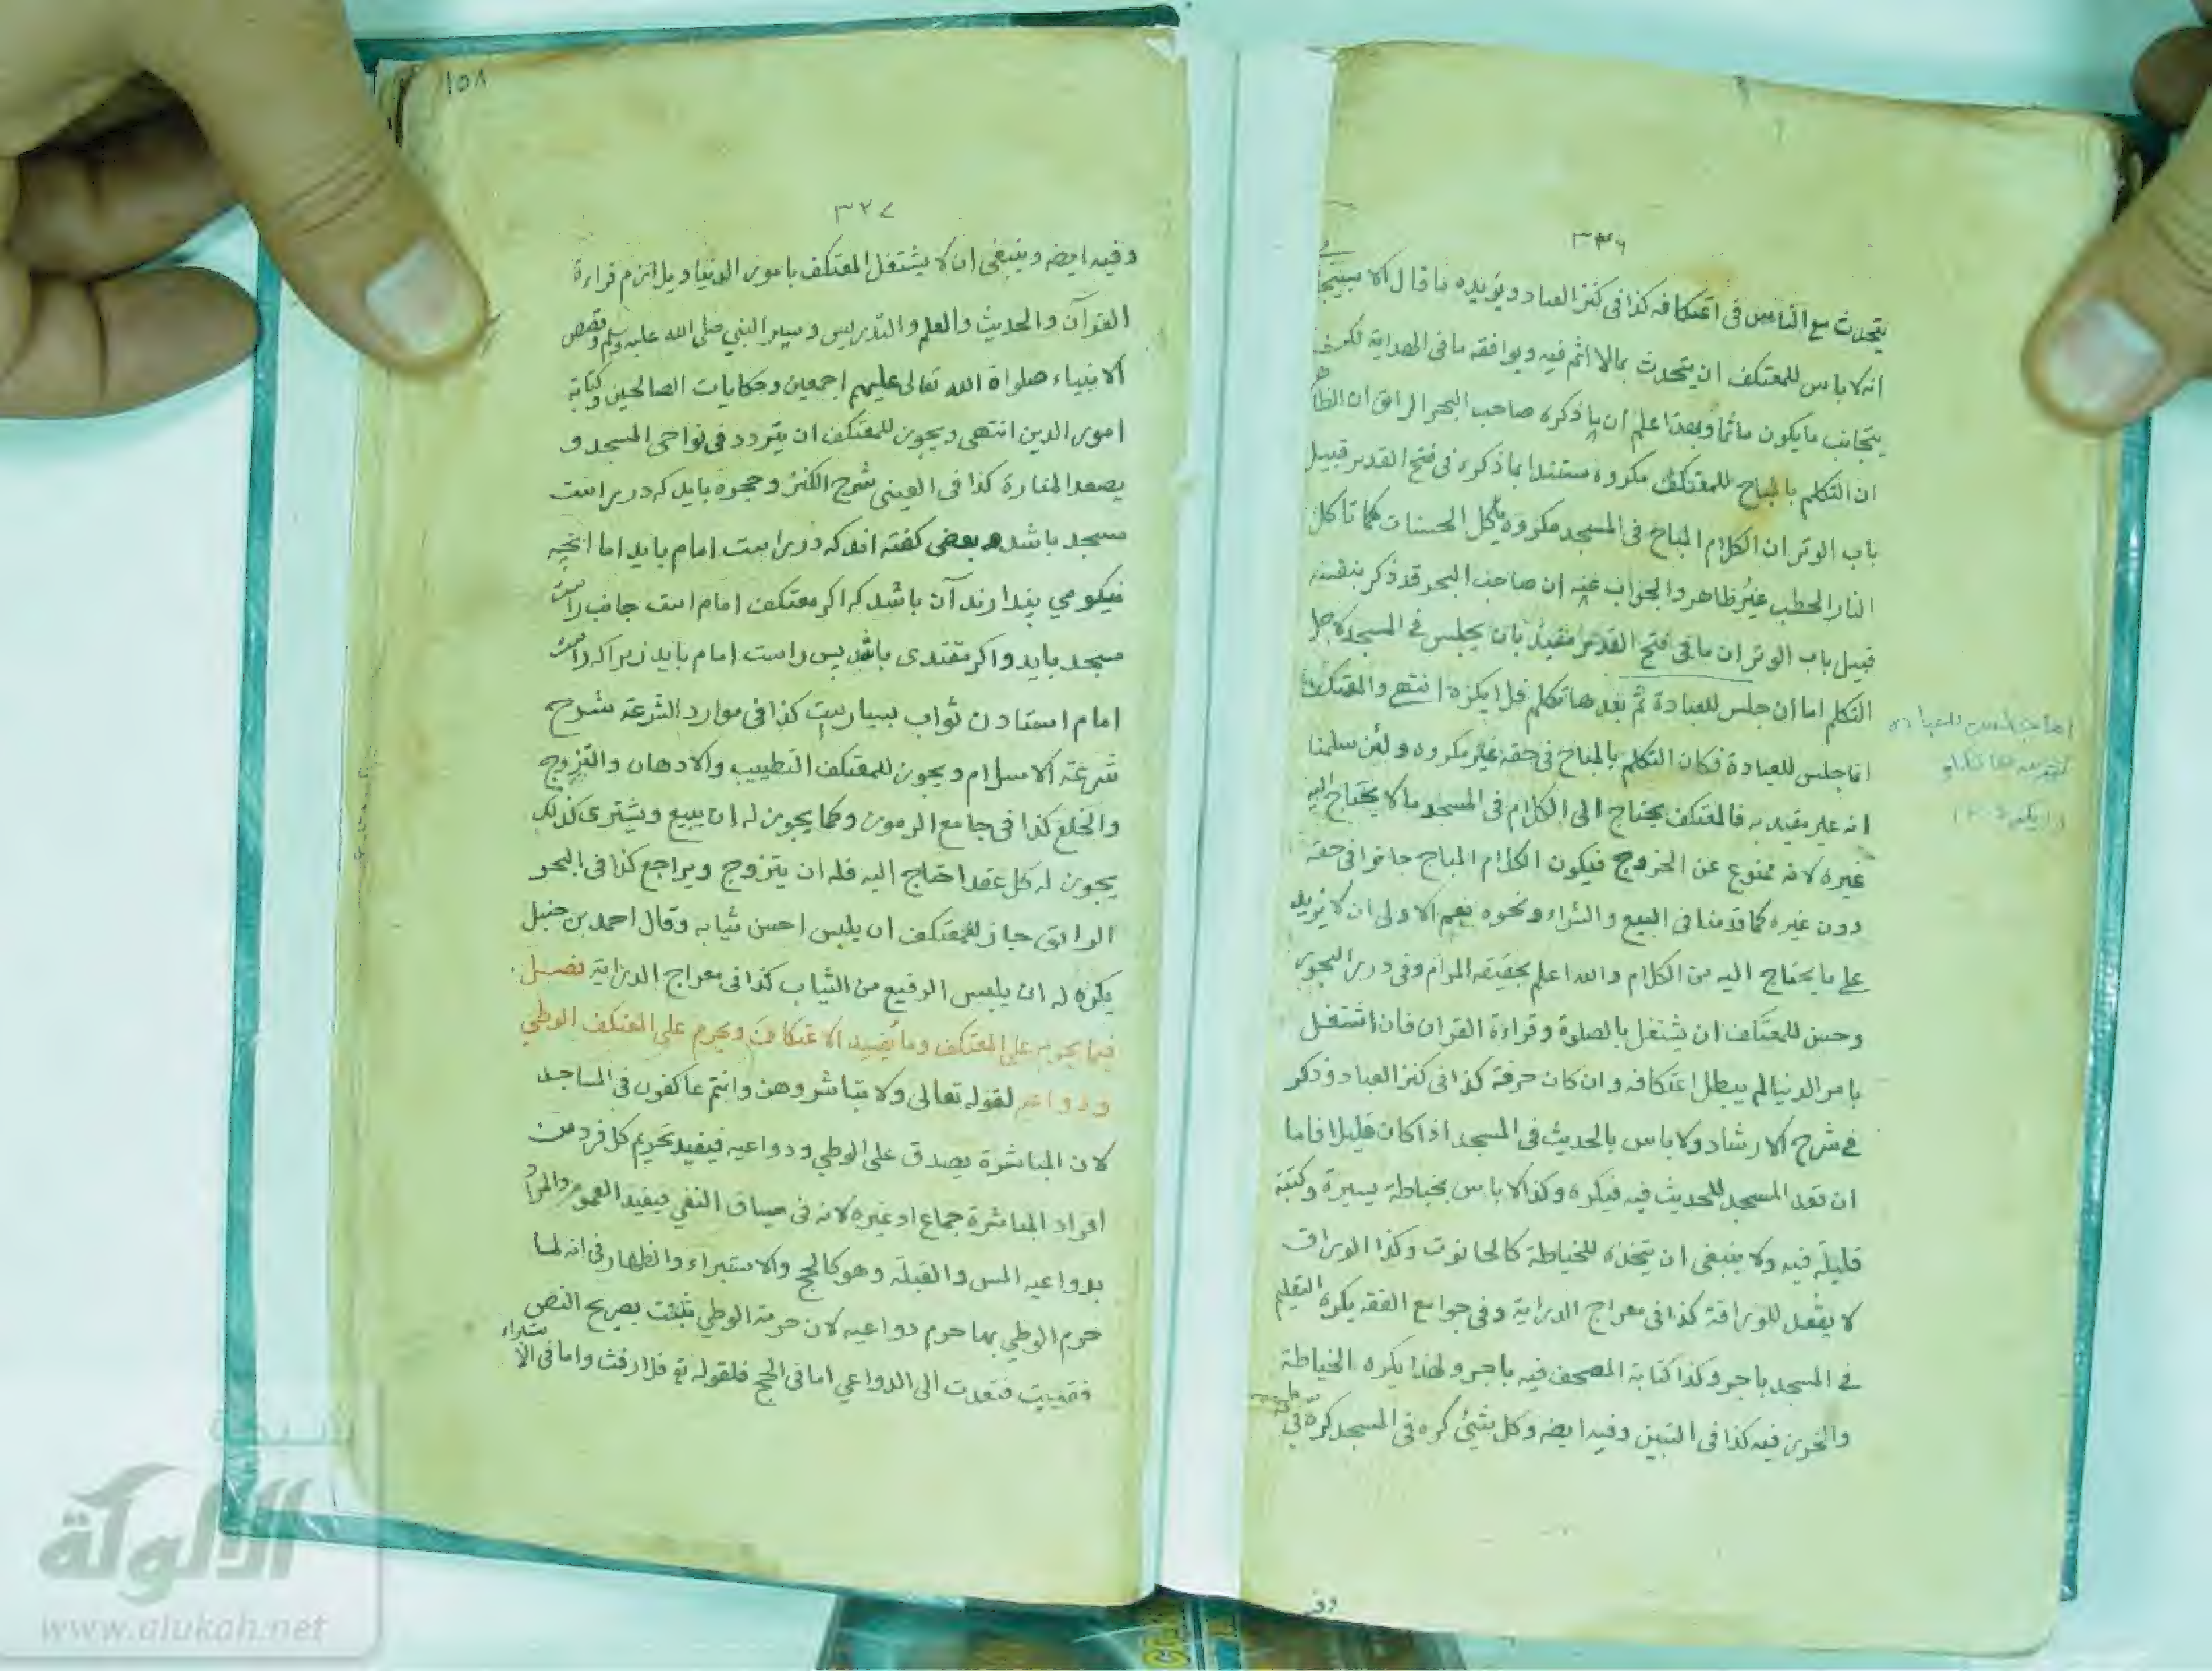 ٣٢٦
يتحدث مع الناس في اعتكافه كذا في كنز العباد ويؤيده ما قال الاسبيجا بي
انه لا باس للمعتكف ان يتحدث بمالا اثم فيه ويوافقه ما في الهداية لكنه
يتجانب ما يكون ماثما وبهذا علم ان ما ذكره صاحب البحر الرائق ان الظاهر
ان التكلم بالمباح للمعتكف مكروه مستندا بما ذكره في فتح القدير قبيل
باب الوتر ان الكلام المباح في المسجد مكروه ياكل الحسنات كما تاكل
النار الحطب غير ظاهر والجواب عنه ان صاحب البحر قد ذكر بنفسه
قبيل باب الوتر ان ما في فتح القدير مقيد بان يجلس في المسجد لاجل
التكلم اما ان جلس للعبادة ثم بعدها تكلم فلا يكره انتهى والمعتكف
انما جلس للعبادة فكان التكلم بالمباح في حقه غير مكروه ولئن سلمنا
انه غير مقيد به فالمعتكف يحتاج الى الكلام في المسجد ما لا يحتاج اليه
غيره لانه ممنوع عن الخروج فيكون الكلام المباح جائزا في حقه
دون غيره كما قدمنا في البيع والشراء ونحوه نعم الاولى ان لا يزيد
على ما يحتاج اليه من الكلام والله اعلم بحقيقة المرام وفي درر البحور
وحسن للمعتكف ان يشتغل بالصلوة وقراءة القران فان اشتغل
بامر الدنيا لم يبطل اعتكافه وان كان حرفة كذا في كنز العباد وذكر
في شرح الارشاد ولا باس بالحديث في المسجد اذا كان قليلا فاما
ان تقعد المسجد للحديث فيه فيكره وكذا لا باس بخياطة يسيرة وكتبة
قليلة فيه ولا ينبغي ان يتخذه للخياطة كالحانوت وكذا الوراق
لا يفعل للوراقة كذا في معراج الدراية وفي جوامع الفقه يكره التعليم
في المسجد باجر وكذا كتابة المصحف فيه باجر ولهذا يكره الخياطة
والخرز فيه كذا في التبين وفيه ايضه وكل شيئ كره في المسجد كره في
اما ان جلس للعبادة
ثم بعدها تكلم
فلا يكره
وفيه
١٥٨
٣٢٧
وفيه ايضه وينبغي ان لا يشتغل المعتكف بامور الدنيا ويلازم قراءة
القرآن والحديث والعلم والتدريس وسير النبي صلى الله عليه وسلم وقصص
الانبياء صلواة الله تعالى عليهم اجمعين وحكايات الصالحين وكتابة
امور الدين انتهى ويجوز للمعتكف ان يتردد في نواحي المسجد و
يصعد المنارة كذا في العيني شرح الكنز وحجره بايد كه در راست
مسجد باشد و بعضي كفته اند كه در راست امام بايد اما انچه
نيكو مي پندارند آن باشد كه اكر معتكف امام است جانب راست
مسجد بايد واكر مقتدى باشد پس راست امام بايد زيرا كه راست
امام استادن ثواب بسيارست كذا في موارد الشرعة شرح
شرعة الاسلام ويجوز للمعتكف التطييب والادهان والتزوج
والخلع كذا في جامع الرموز وكما يجوز له ان يبيع ويشترى كذلك
يجوز له كل عقد احتاج اليه فله ان يتزوج ويراجع كذا في البحر
الرائق جاز للمعتكف ان يلبس احسن ثيابه وقال احمد بن حنبل
يكره له ان يلبس الرفيع من الثياب كذا في معراج الدراية فصل
فيما يحرم على المعتكف وما يفسد الاعتكاف ويحرم على المعتكف الوطي
ودواعيه لقوله تعالى ولا تباشروهن وانتم عاكفون في المساجد
لان المباشرة يصدق على الوطي ودواعيه فيفيد تحريم كل فرد من
افراد المباشرة جماع او غيره لانه في سياق النفي فيفيد العموم والمراد
بدواعيه المس والقبلة وهو كالحج والاستبراء والظهار في انه لما
حرم الوطي بها حرم دواعيه لان حرمة الوطي ثبتت بصريح النص
فتعدت الى الدواعي اما في الحج فلقوله تع فلا رفث واما في الاستبراء
شبكة
الألوكة
www.alukah.net